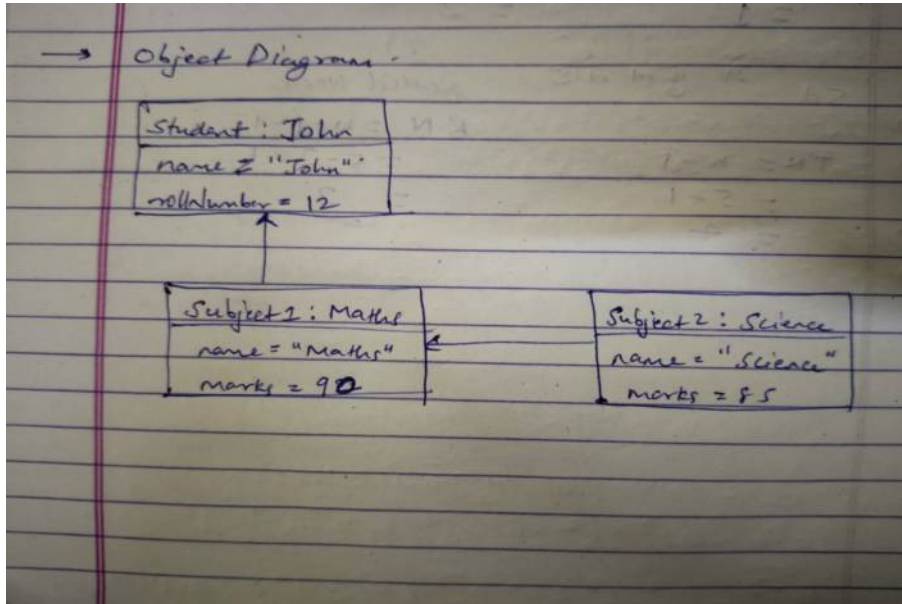 → Object Diagram.
Student : John
name = "John"
rollNumber = 12
Subject 1 : Maths
name = "Maths"
marks = 90
Subject 2 : Science
name = "Science"
marks = 85